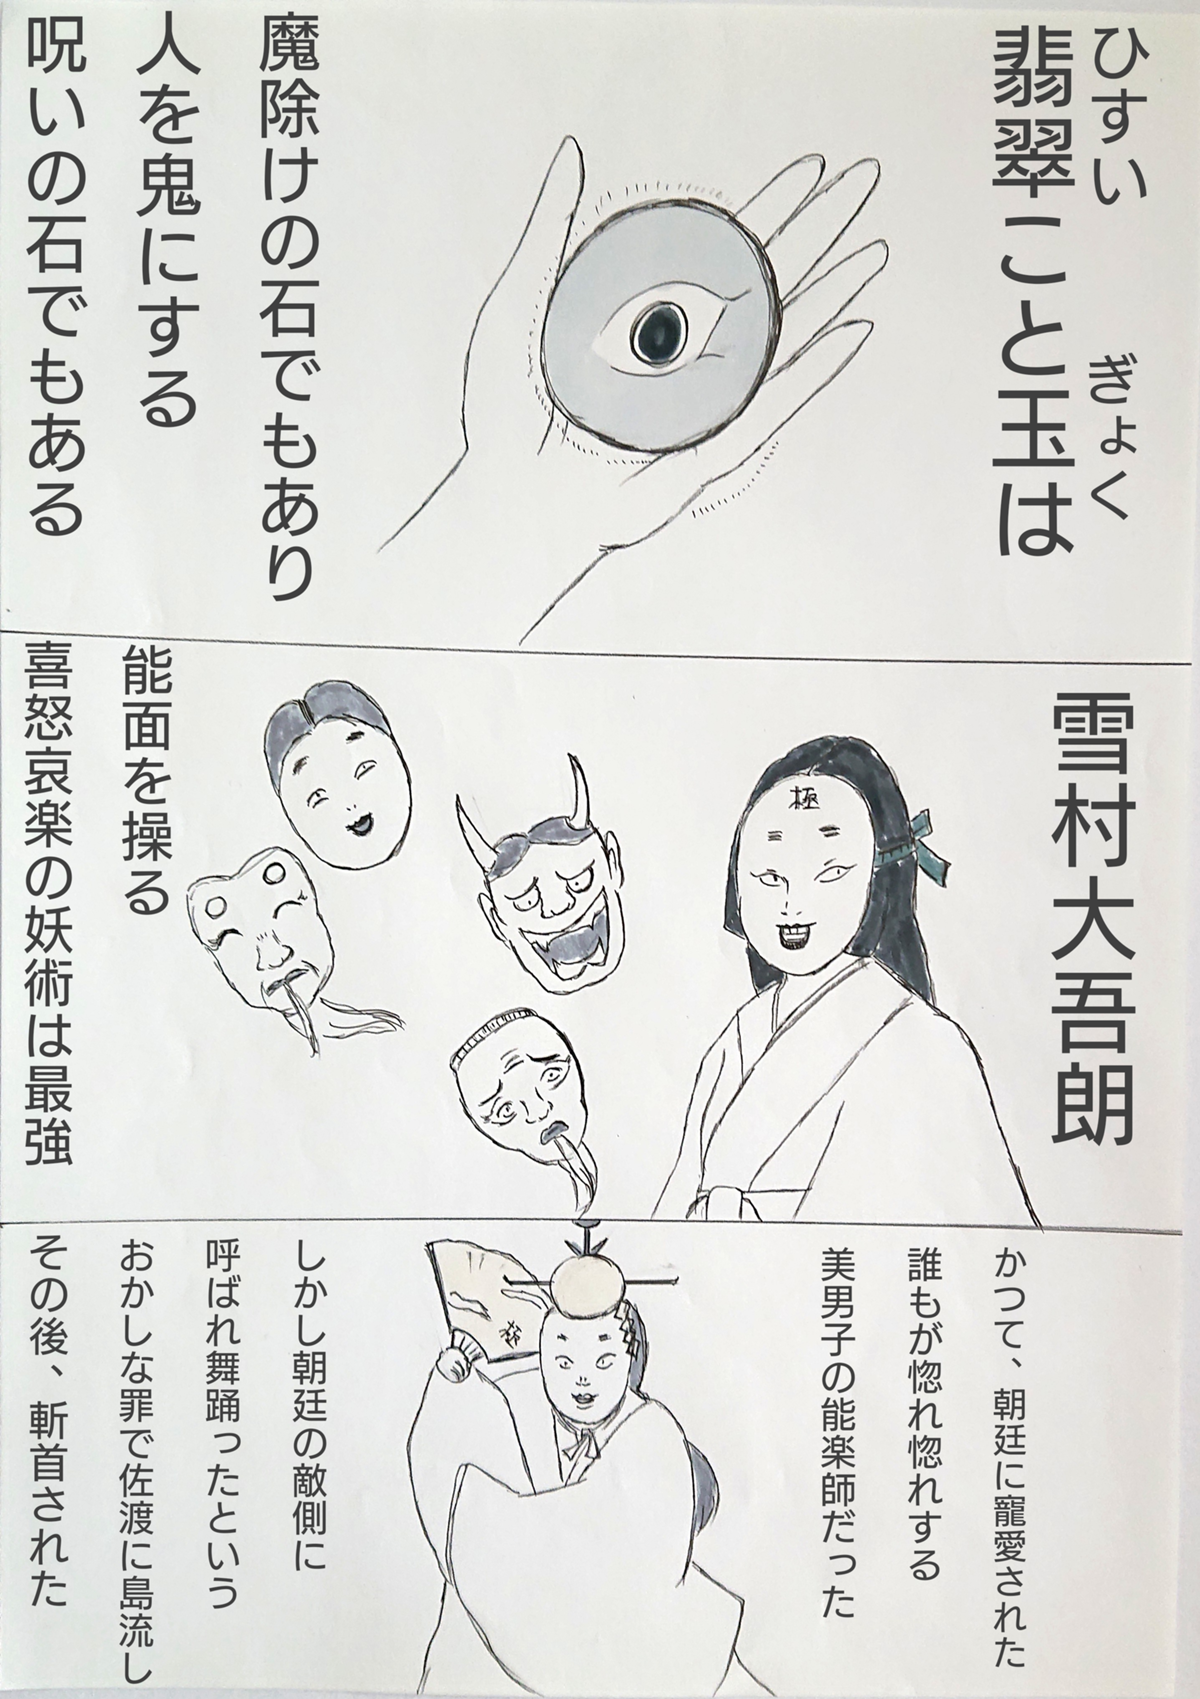 ひすい
ぎょく
翡翠こと玉は
魔除けの石でもあり
人を鬼にする
呪いの石でもある
雪村大吾朗
極
能面を操る
喜怒哀楽の妖術は最強
かつて、朝廷に寵愛された
誰もが惚れ惚れする
美男子の能楽師だった
しかし朝廷の敵側に
呼ばれ舞踊ったという
おかしな罪で佐渡に島流し
その後、斬首された